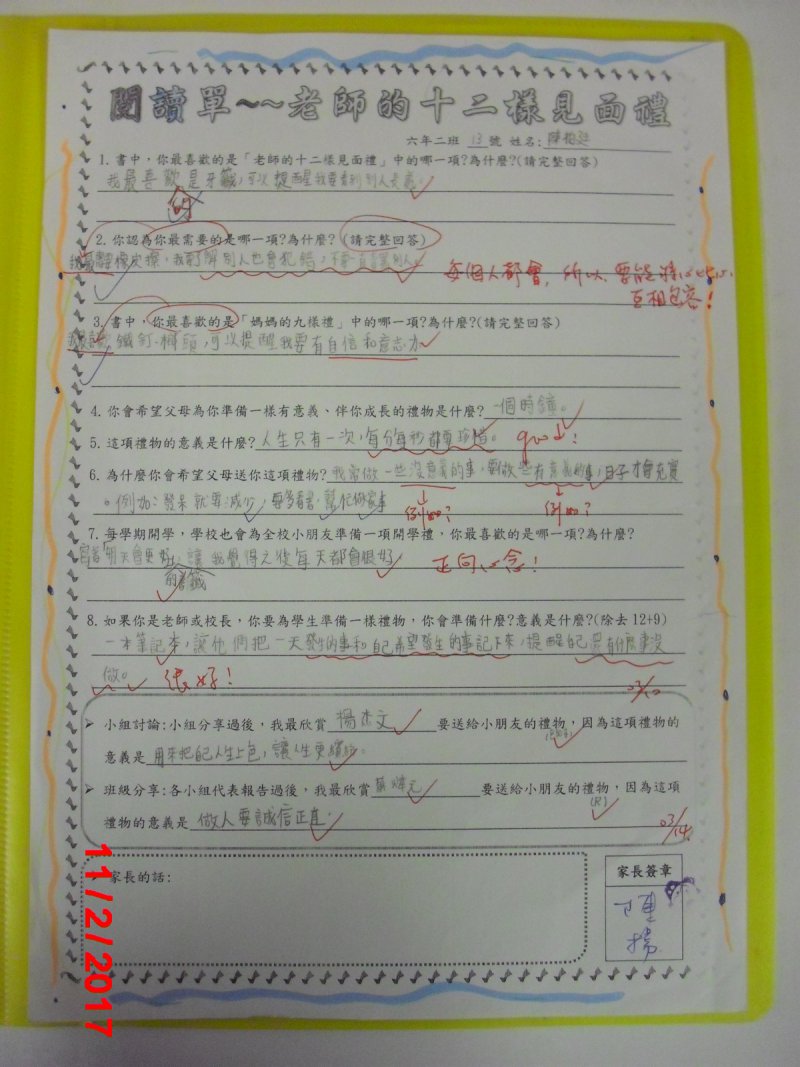 閱讀單~~老師的十二樣見面禮
六年二班 13 號 姓名:陳柏延
1. 書中,你最喜歡的是「老師的十二樣見面禮」中的哪一項?為什麼?(請完整回答)
我最喜歡是牙籤,可以提醒我要看到別人長處。
的
2. 你認為你最需要的是哪一項?為什麼?(請完整回答)
橡皮擦,我要了解別人也會犯錯,不要一直言罵別人。
每個人都會,所以要能將心比心,
互相包容!
3. 書中,你最喜歡的是「媽媽的九樣禮」中的哪一項?為什麼?(請完整回答)
鐵釘、榔頭,可以提醒我要有自信和意志力
4. 你會希望父母為你準備一樣有意義、伴你成長的禮物是什麼?一個時鐘。
5. 這項禮物的意義是什麼?人生只有一次,每分每秒都要珍惜。 good!
6. 為什麼你會希望父母送你這項禮物?我常做一些沒意義的事,要做些有意義的事,日子才會充實
。例如:發呆就要減少,要多看書,幫忙做家事
例如? 例如?
7. 每學期開學,學校也會為全校小朋友準備一項開學禮,你最喜歡的是哪一項?為什麼?
寫著「明天會更好」,讓我覺得之後每天都會很好 正向心念!
的書籤
8. 如果你是老師或校長,你要為學生準備一樣禮物,你會準備什麼?意義是什麼?(除去 12+9)
一本筆記本,讓他們把一天發生的事和自己希望發生的事記下來,提醒自己還有什麼事沒
做。 很好!
03/10
小組討論:小組分享過後,我最欣賞 楊杰文 要送給小朋友的禮物,因為這項禮物的
意義是 用來把自己人生上色,讓人生更繽紛。
班級分享:各小組代表報告過後,我最欣賞 要送給小朋友的禮物,因為這項
(尺)
禮物的意義是 做人要誠信正直。
03/14
家長的話:
家長簽章
陳
11/2/2017